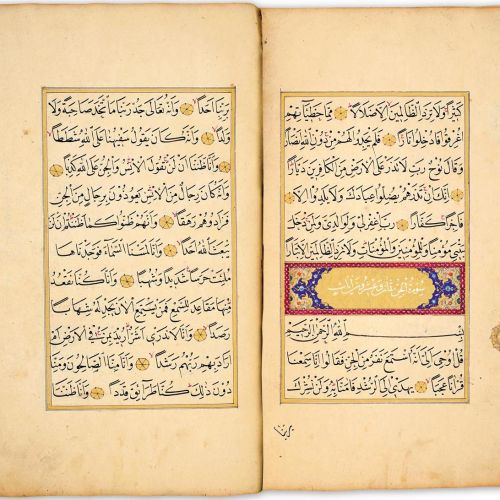 كَثِيرًا وَلَا تَزِدِ الظَّالِمِينَ إِلَّا ضَلَالًا مِمَّا خَطِيئَاتِهِمْ
أُغْرِقُوا فَأُدْخِلُوا نَارًا فَلَمْ يَجِدُوا لَهُمْ مِنْ دُونِ اللَّهِ أَنْصَارًا
وَقَالَ نُوحٌ رَبِّ لَا تَذَرْ عَلَى الْأَرْضِ مِنَ الْكَافِرِينَ دَيَّارًا
إِنَّكَ إِنْ تَذَرْهُمْ يُضِلُّوا عِبَادَكَ وَلَا يَلِدُوا إِلَّا
فَاجِرًا كَفَّارًا رَبِّ اغْفِرْ لِي وَلِوَالِدَيَّ وَلِمَنْ دَخَلَ
بَيْتِيَ مُؤْمِنًا وَلِلْمُؤْمِنِينَ وَالْمُؤْمِنَاتِ وَلَا تَزِدِ الظَّالِمِينَ إِلَّا تَبَارًا
سورة الجن
بِسْمِ اللَّهِ الرَّحْمَنِ الرَّحِيمِ
قُلْ أُوحِيَ إِلَيَّ أَنَّهُ اسْتَمَعَ نَفَرٌ مِنَ الْجِنِّ فَقَالُوا إِنَّا سَمِعْنَا
قُرْآنًا عَجَبًا يَهْدِي إِلَى الرُّشْدِ فَآمَنَّا بِهِ وَلَنْ نُشْرِكَ
بربنا
بِرَبِّنَا أَحَدًا وَأَنَّهُ تَعَالَى جَدُّ رَبِّنَا مَا اتَّخَذَ صَاحِبَةً وَلَا
وَلَدًا وَأَنَّهُ كَانَ يَقُولُ سَفِيهُنَا عَلَى اللَّهِ شَطَطًا
وَأَنَّا ظَنَنَّا أَنْ لَنْ تَقُولَ الْإِنْسُ وَالْجِنُّ عَلَى اللَّهِ كَذِبًا
وَأَنَّهُ كَانَ رِجَالٌ مِنَ الْإِنْسِ يَعُوذُونَ بِرِجَالٍ مِنَ الْجِنِّ
فَزَادُوهُمْ رَهَقًا وَأَنَّهُمْ ظَنُّوا كَمَا ظَنَنْتُمْ أَنْ لَنْ
يَبْعَثَ اللَّهُ أَحَدًا وَأَنَّا لَمَسْنَا السَّمَاءَ فَوَجَدْنَاهَا
مُلِئَتْ حَرَسًا شَدِيدًا وَشُهُبًا وَأَنَّا كُنَّا نَقْعُدُ
مِنْهَا مَقَاعِدَ لِلسَّمْعِ فَمَنْ يَسْتَمِعِ الْآنَ يَجِدْ لَهُ شِهَابًا
رَصَدًا وَأَنَّا لَا نَدْرِي أَشَرٌّ أُرِيدَ بِمَنْ فِي الْأَرْضِ أَمْ
أَرَادَ بِهِمْ رَبُّهُمْ رَشَدًا وَأَنَّا مِنَّا الصَّالِحُونَ وَمِنَّا
دُونَ ذَلِكَ كُنَّا طَرَائِقَ قِدَدًا وَأَنَّا ظَنَنَّا